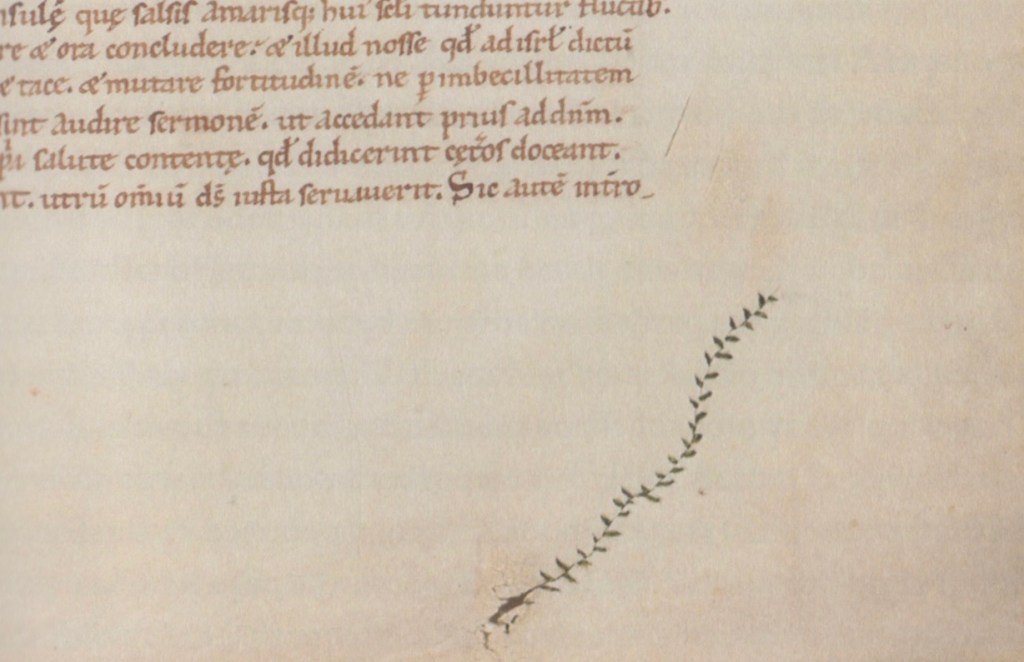 insulę que salsis amarisq; hui scli tunduntur fluctib.
re & ora concludere. & illud nosse qđ ad isrł dictū
& tace. & mutare fortitudinē. ne ꝑ imbecillitatem
sint audire sermonē. ut accedant prius ad dn̄m.
salute contentę. qđ didicerint cęt̃os doceant.
nt. utrū om̄iū ds̄ iusta seruuierit. Sic autē intro_